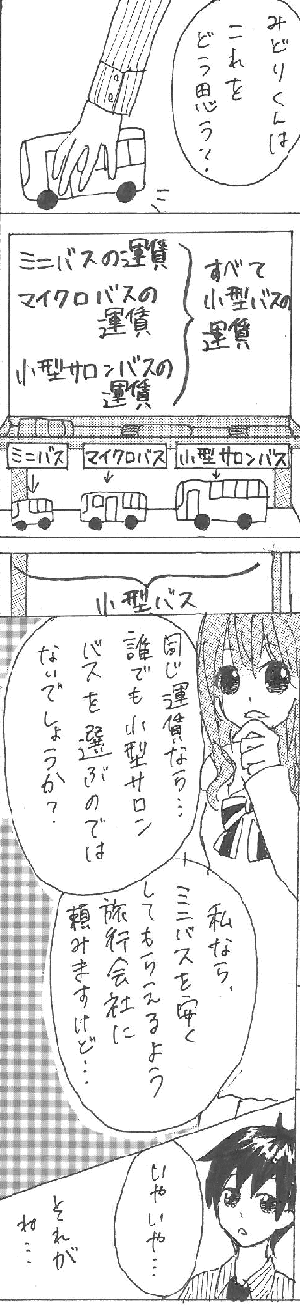 みどりくんは
これを
どう思う?
ミニバスの運賃
マイクロバスの
運賃
小型サロンバスの
運賃
すべて
小型バスの
運賃
ミニバス
マイクロバス
小型サロンバス
小型バス
同じ運賃なら…
誰でも小型サロン
バスを選ぶのでは
ないでしょうか?
私なら、
ミニバスを安く
してもらえるよう
旅行会社に
頼みますけど…
いやいや…
それが
ね…